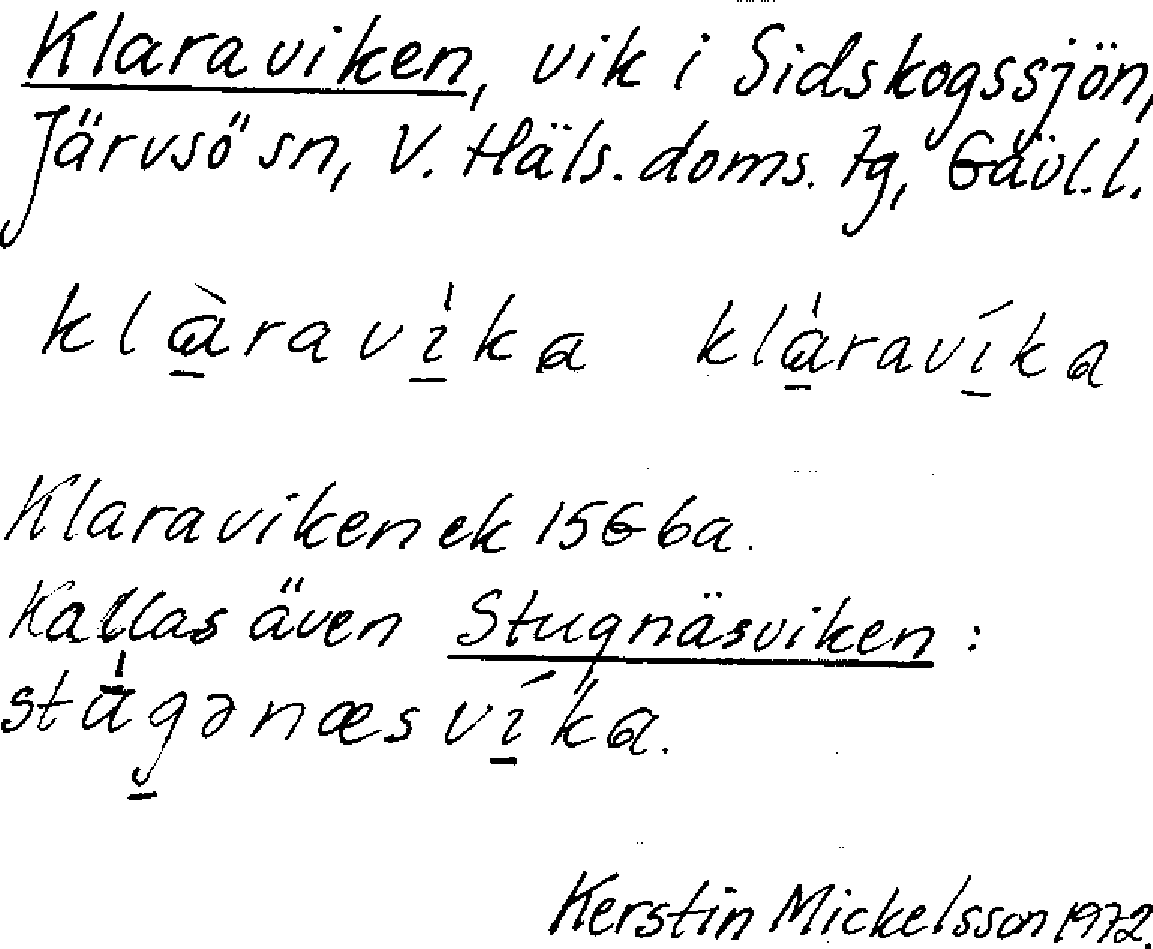 Klaraviken, vik i Sidskogssjön,
Järvsö sn, V. Häls. doms. tg, Gävl. l.
klàravika klàravíka
Klaraviken ek 15G6a.
Kallas även Stugnäsviken :
stùgənæsvíka.
Kerstin Mickelsson 1972.